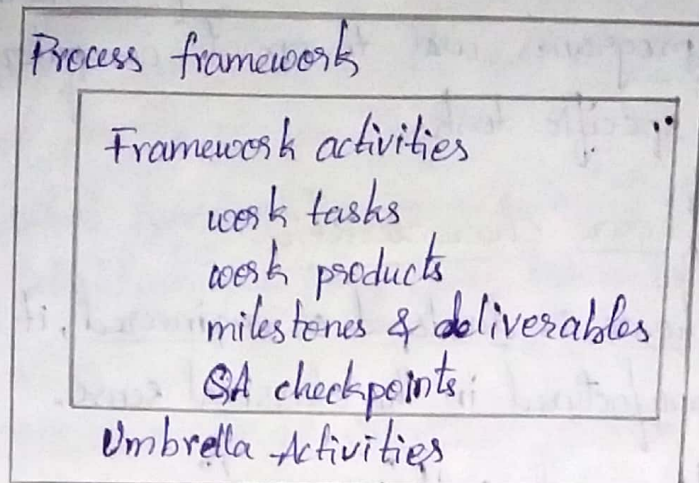 Process framework
Framework activities
work tasks
work products
milestones & deliverables
QA checkpoints
Umbrella Activities